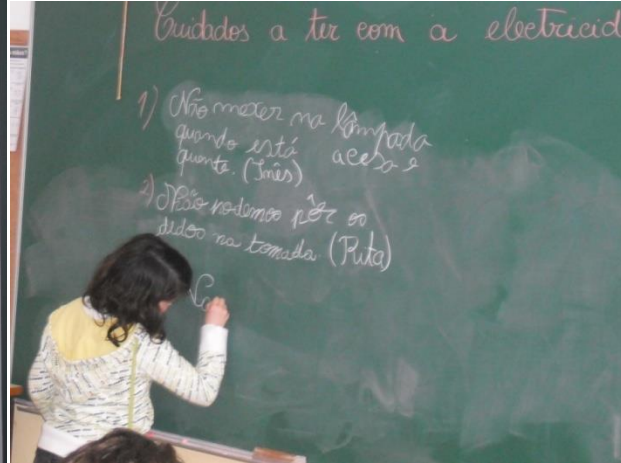 Cuidados a ter com a electricid
1) Não mexer na lâmpada
quando está acesa e
quente. (Inês)
2) Não podemos pôr os
dedos na tomada (Rita)